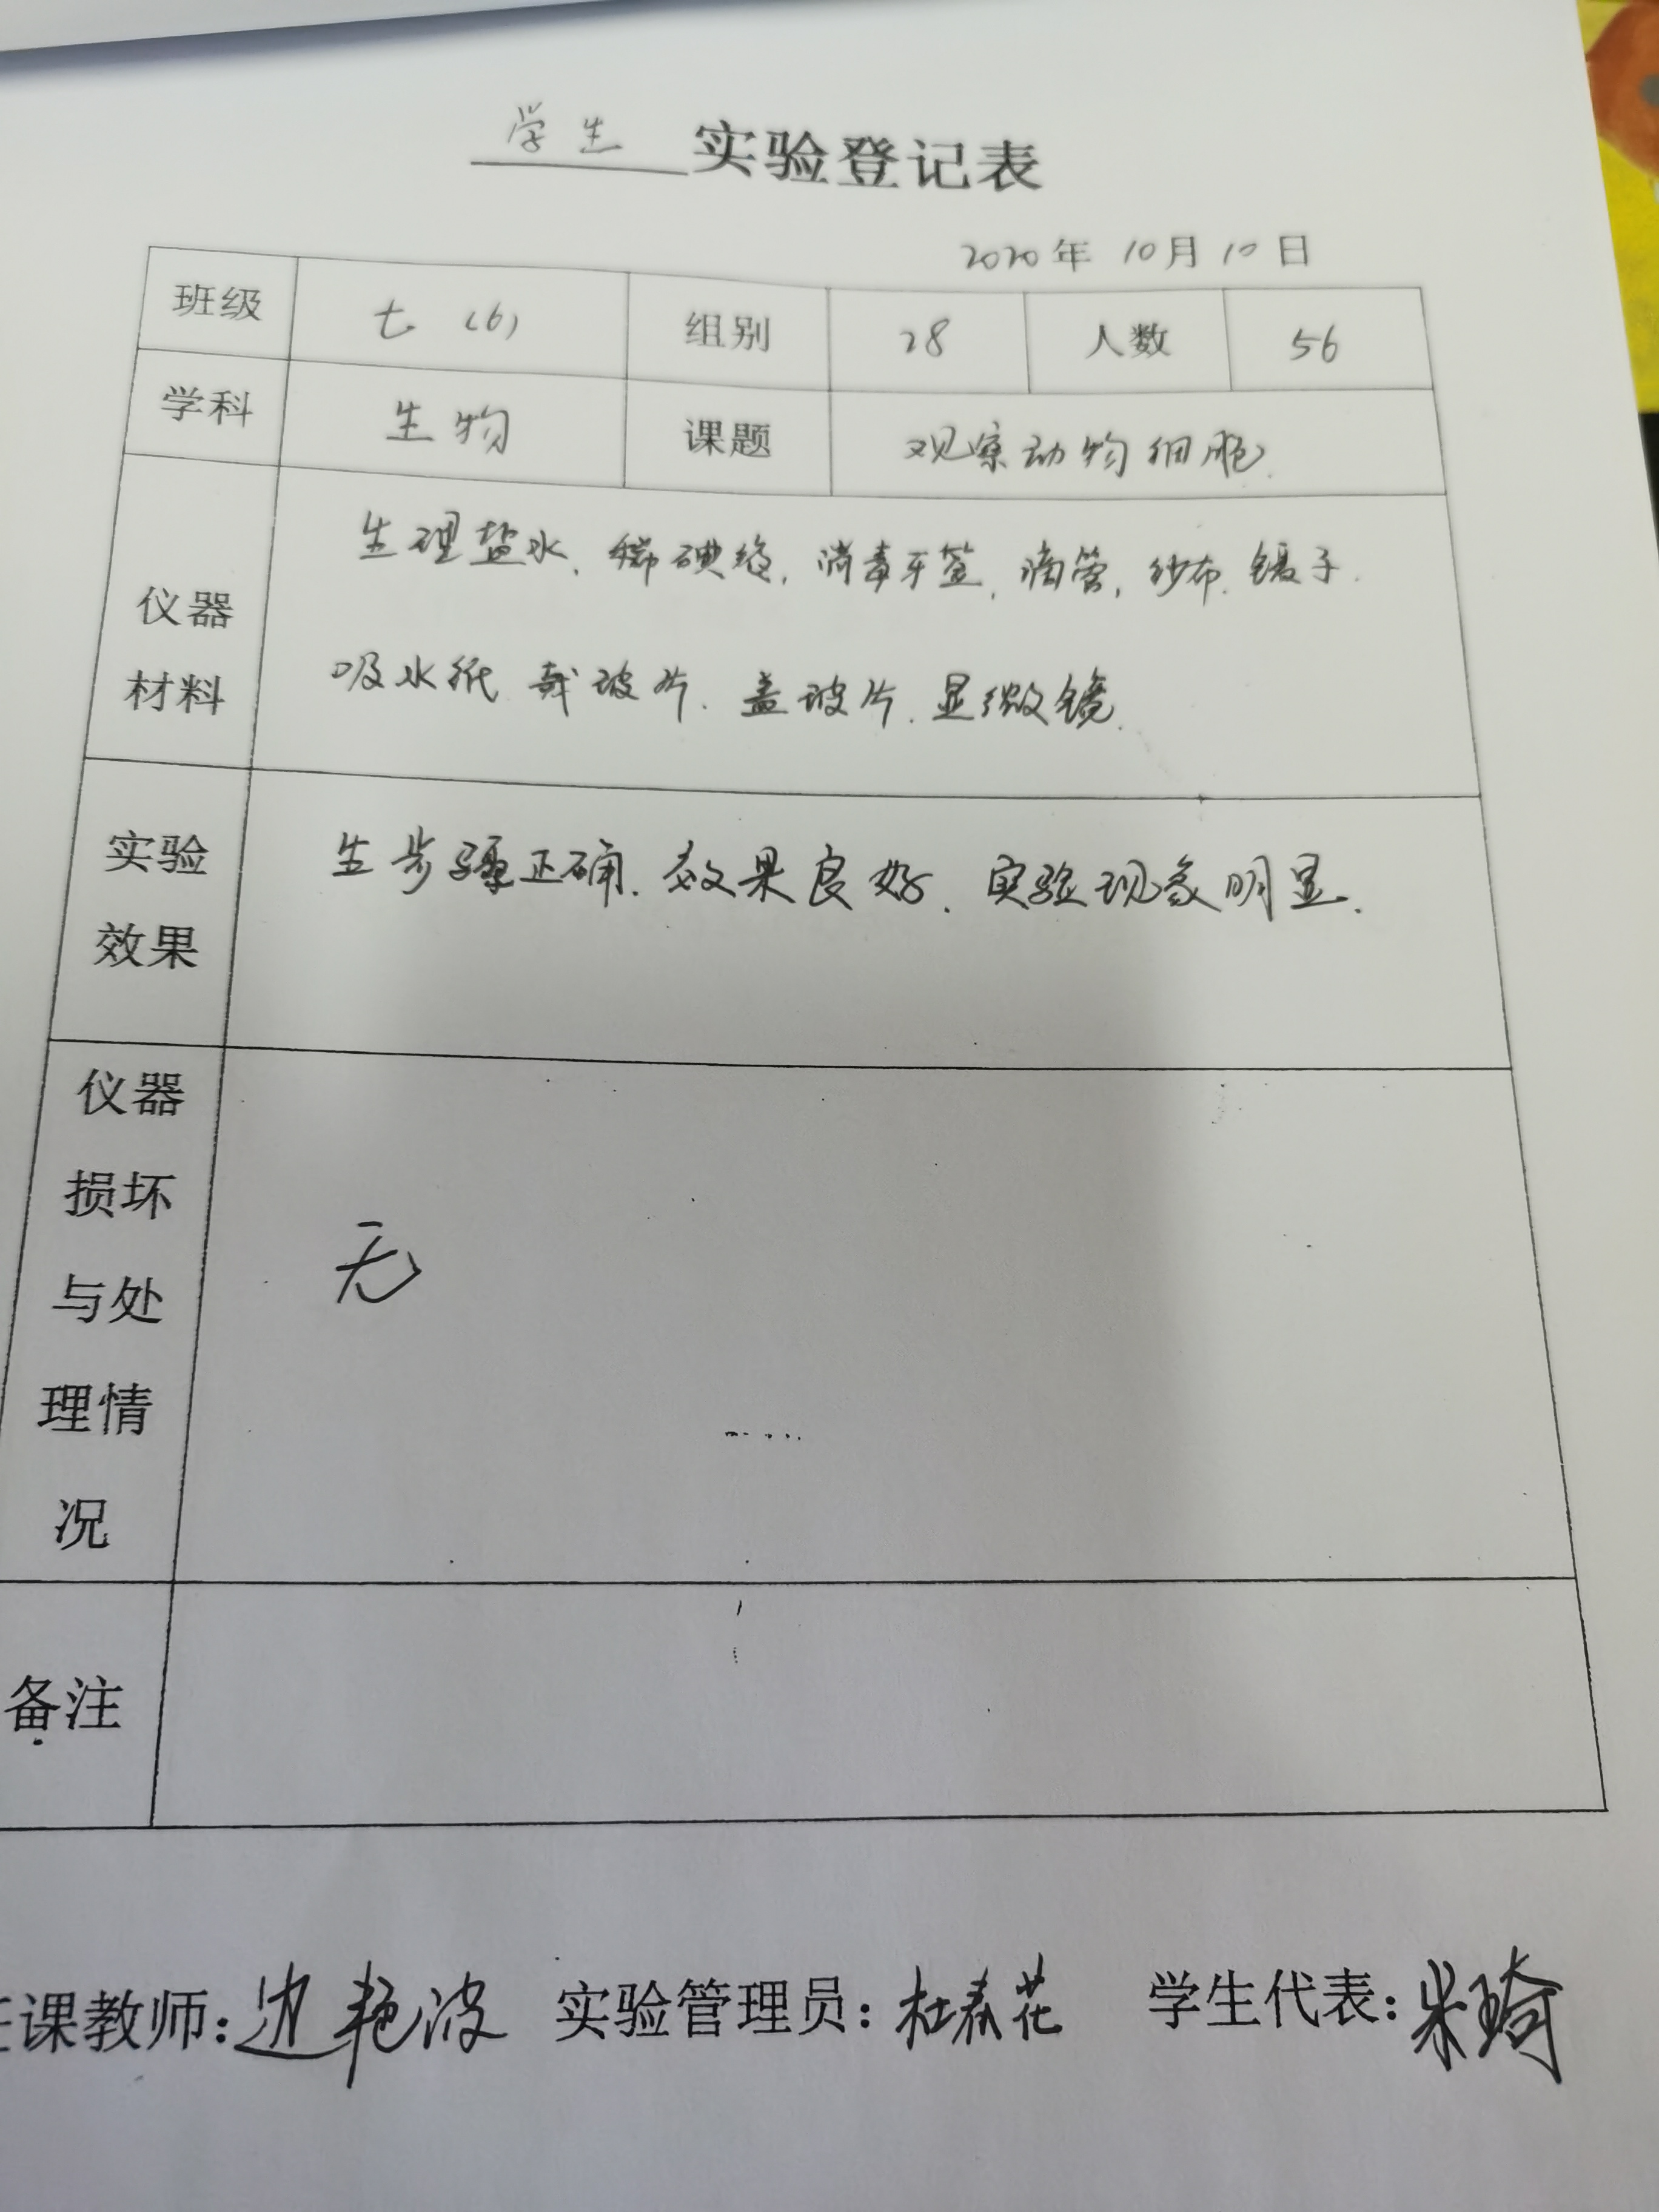 学生 实验登记表
2020年 10月 10日
班级 七（6） 组别 28 人数 56
学科 生物 课题 观察动物细胞.
仪器
材料
生理盐水、稀碘液，消毒牙签，滴管，纱布、镊子.
吸水纸 载玻片. 盖玻片. 显微镜.
实验
效果
生步骤正确. 效果良好. 实验现象明显.
仪器
损坏
与处
理情
况
无
备注
课教师: 边艳波 实验管理员: 杜春花 学生代表: 朱琦